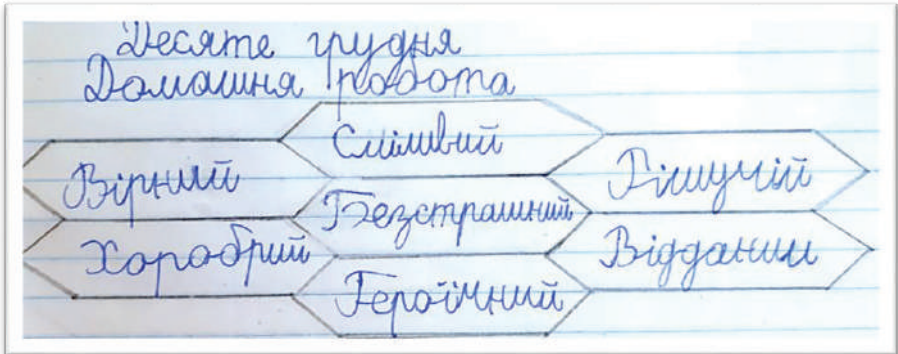 Десяте грудня
Домашня робота
Сміливий
Вірний
Рішучій
Безстрашний
Хоробрий
Відданий
Героїчний